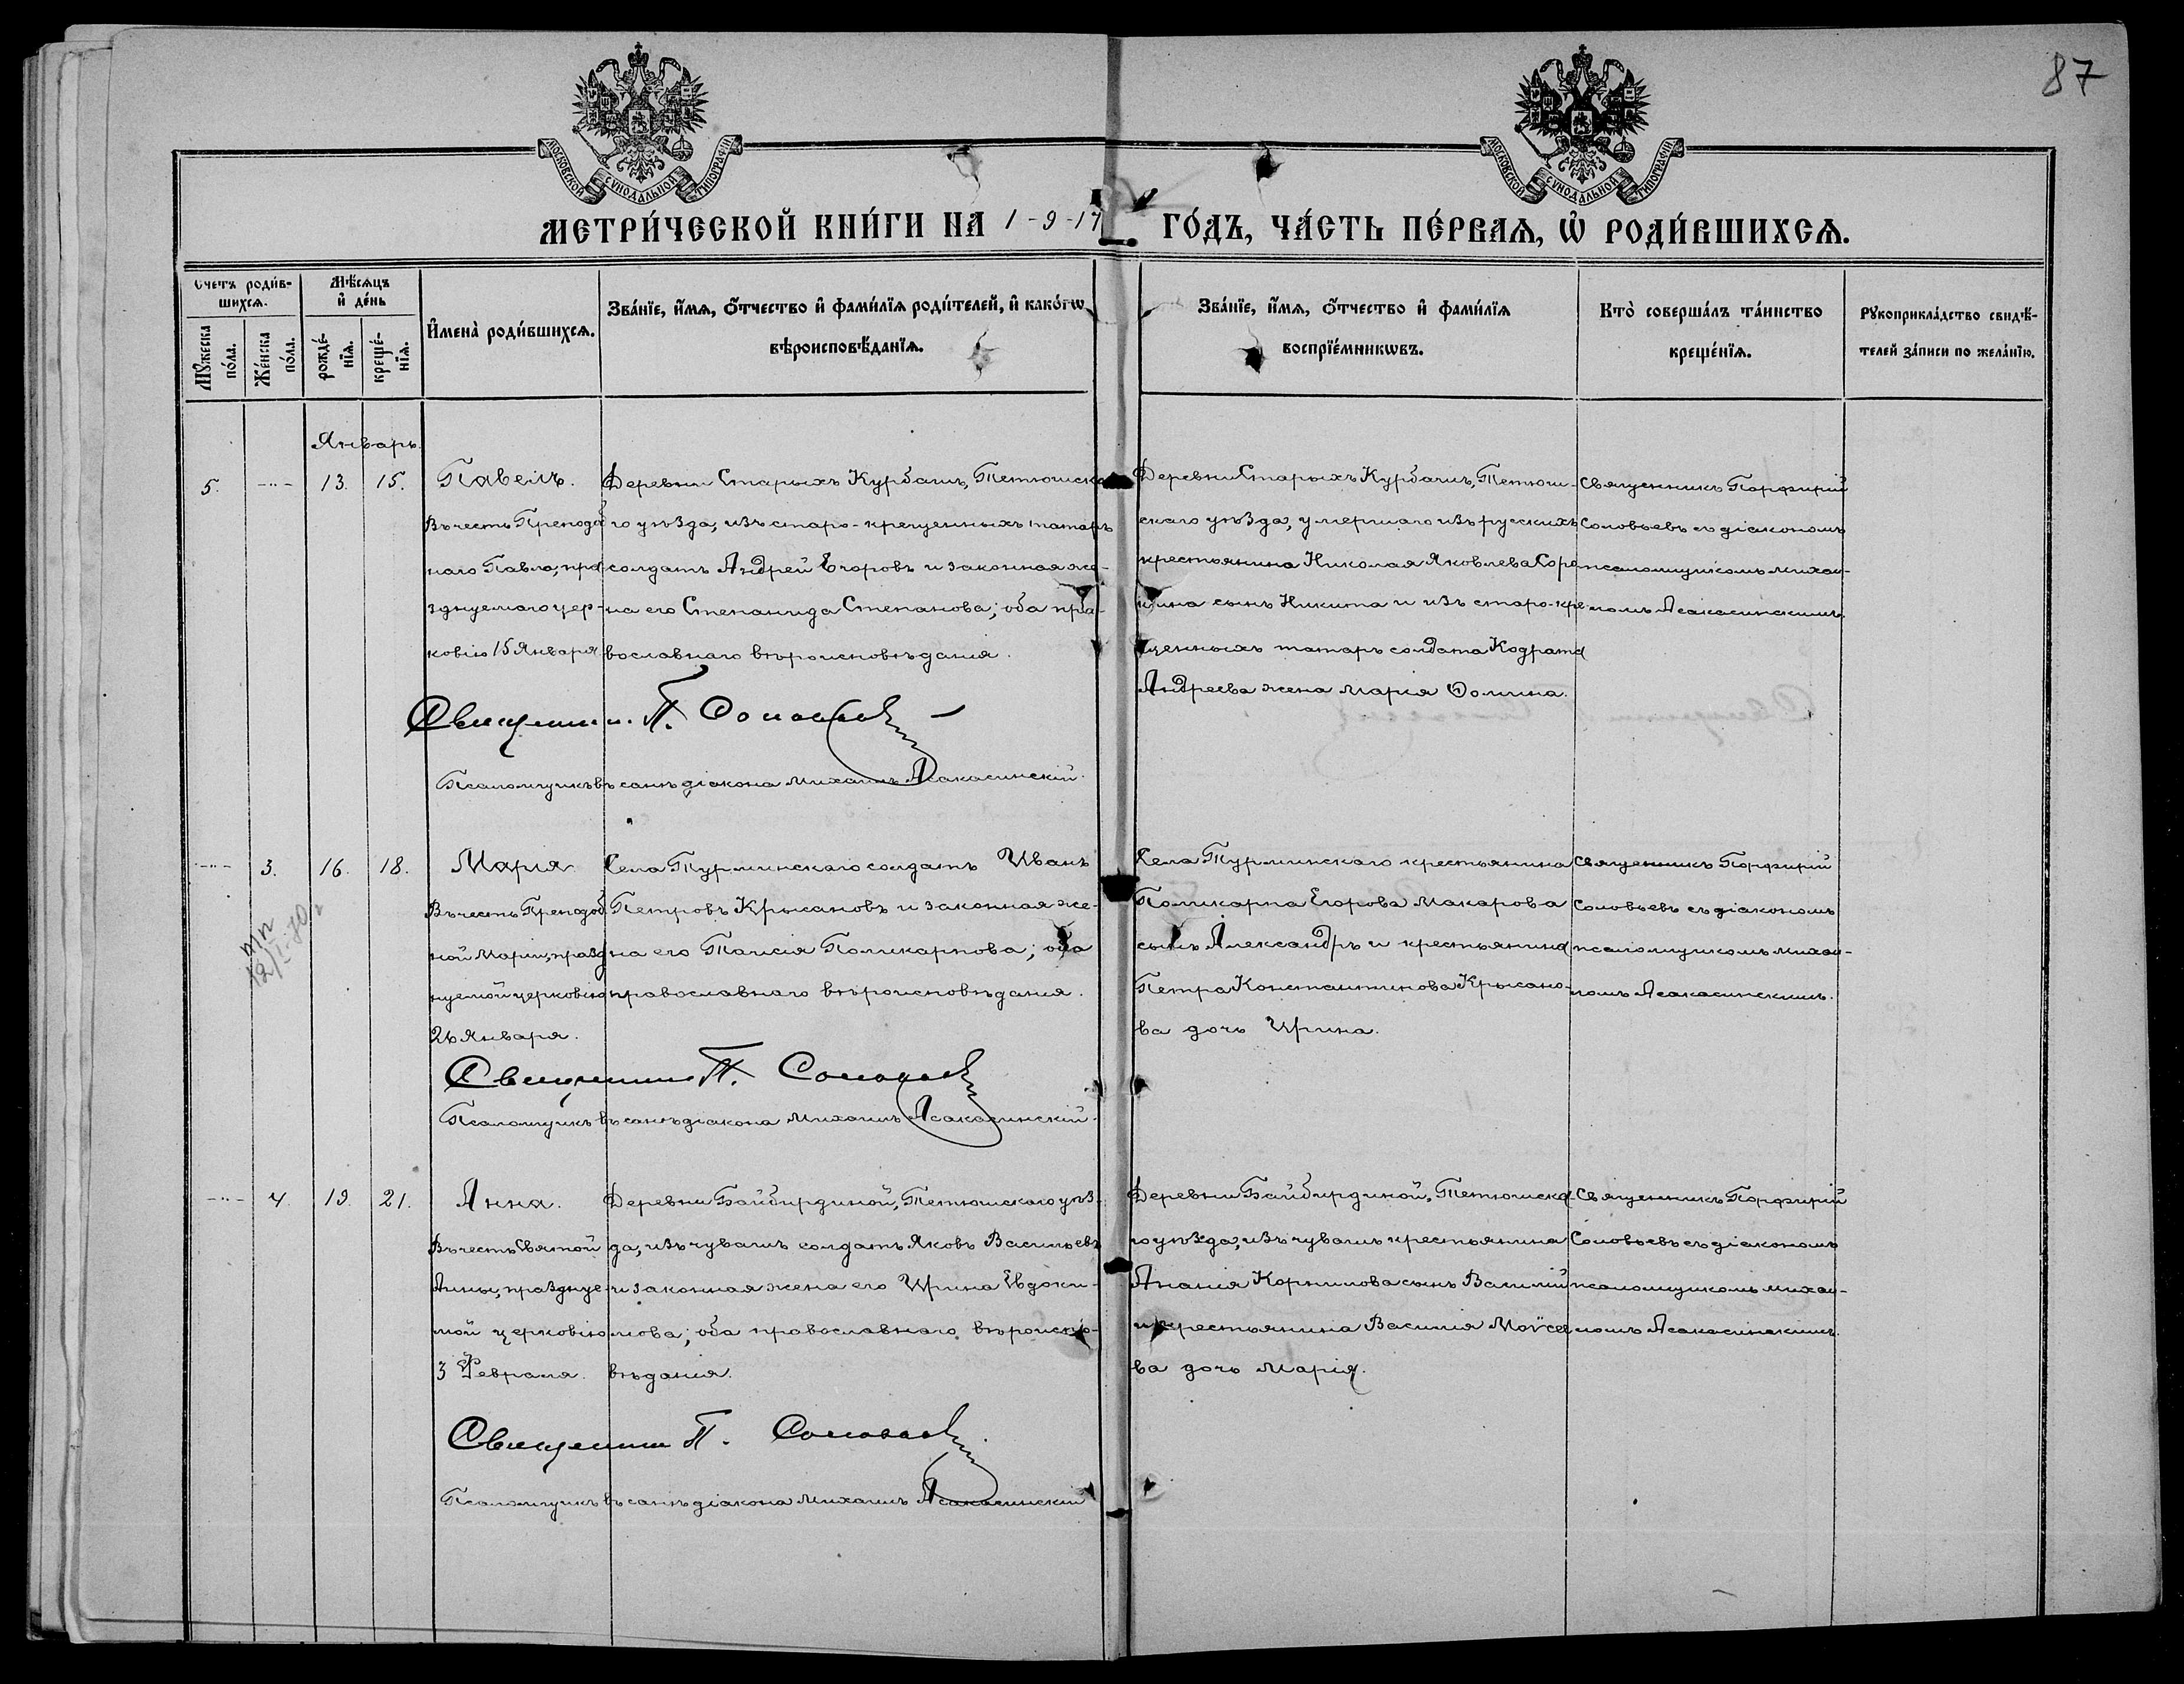 87
МОСКОВСКОЙ СѴНОДАЛЬНОЙ ТИПОГРАФІИ
МОСКОВСКОЙ СѴНОДАЛЬНОЙ ТИПОГРАФІИ
МЕТРИ́ЧЕСКОЙ КНИ́ГИ НА 1-9-17 ГО́ДЪ, ЧА́СТЬ ПЕ́РВАѦ, Ѡ҆ РОДИ́ВШИХСѦ.
Счетъ роди́в-
шихсѧ.
Мꙋ́жеска по́ла.
Же́нска по́ла.
Мѣ́сѧцъ
и҆ де́нь
рожде́-
нїѧ.
креще́-
нїѧ.
И҆мена̀ роди́вшихсѧ.
Зва́нїе, и҆́мѧ, ѻ҆́тчество и҆ фами́лїѧ роди́телей, и҆ како́гѡ
вѣроисповѣ́данїѧ.
Зва́нїе, и҆́мѧ, ѻ҆́тчество и҆ фами́лїѧ
воспрїе́мникѡвъ.
Кто̀ соверша́лъ та́инство
креще́нїѧ.
Рꙋкоприкла́дство свидѣ́-
телей за́писи по жела́нїю.
Январь.
5. -"- 13. 15. Павелъ.
Въ честь Преподоб
наго Павла, пра
зднуемаго цер-
ковію 15 Января.
Деревни Старыхъ Курбашъ, Тетюшска
го уѣзда, изъ старо-крещенныхъ татаръ
солдатъ Андрей Егоровъ и законная же-
на его Степанида Степанова; оба пра-
вославнаго вѣроисповѣданія.
Деревни Старыхъ Курбашъ, Тетюш-
скаго уѣзда, умершаго изъ русскихъ
крестьянина Николая Яковлева Соро
кина сынъ Никита и изъ старо-кре-
щенныхъ татаръ солдата Кодрата
Андреева жена Марія Ѳомина.
Священникъ Порфирій
Соловьевъ съ діакономъ
псаломщикомъ Михаи-
ломъ Асакасинскимъ.
Священник П. Соловьев
Псаломщикъ въ санѣ діакона Михаилъ Асакасинскій.
-"- 3. 16. 18. Марія
Въ честь Преподоб
ной Маріи, празд
нуемой церковію
26 Января.
Села Турминскаго солдатъ Иванъ
Петровъ Крысановъ и законная же-
на его Таисія Поликарпова; оба
православнаго вѣроисповѣданія.
Села Турминскаго крестьянина
Поликарпа Егорова Макарова
сынъ Александръ и крестьянина
Петра Константинова Крысано-
ва дочь Ирина.
Священникъ Порфирій
Соловьевъ съ діакономъ
псаломщикомъ Михаи-
ломъ Асакасинскимъ.
Священник П. Соловьев
Псаломщикъ въ санѣ діакона Михаилъ Асакасинскій.
-"- 4. 19. 21. Анна.
Въ честь Святой
Анны, праздnуе-
мой церковію
3 Февраля.
Деревни Байбирдиной, Тетюшскаго уѣз-
да, изъ чувашъ солдатъ Яковъ Васильевъ
и законная жена его Ирина Евдоки-
мова; оба православнаго вѣроиспо-
вѣданія.
Деревни Байбирдиной, Тетюшска-
го уѣзда, изъ чувашъ крестьянина
Ананія Корнилова сынъ Василій
и крестьянина Василія Моѵсее
ва дочь Марія.
Священникъ Порфирій
Соловьевъ съ діакономъ
псаломщикомъ Михаи-
ломъ Асакасинскимъ.
Священник П. Соловьев
Псаломщикъ въ санѣ діакона Михаилъ Асакасинскій